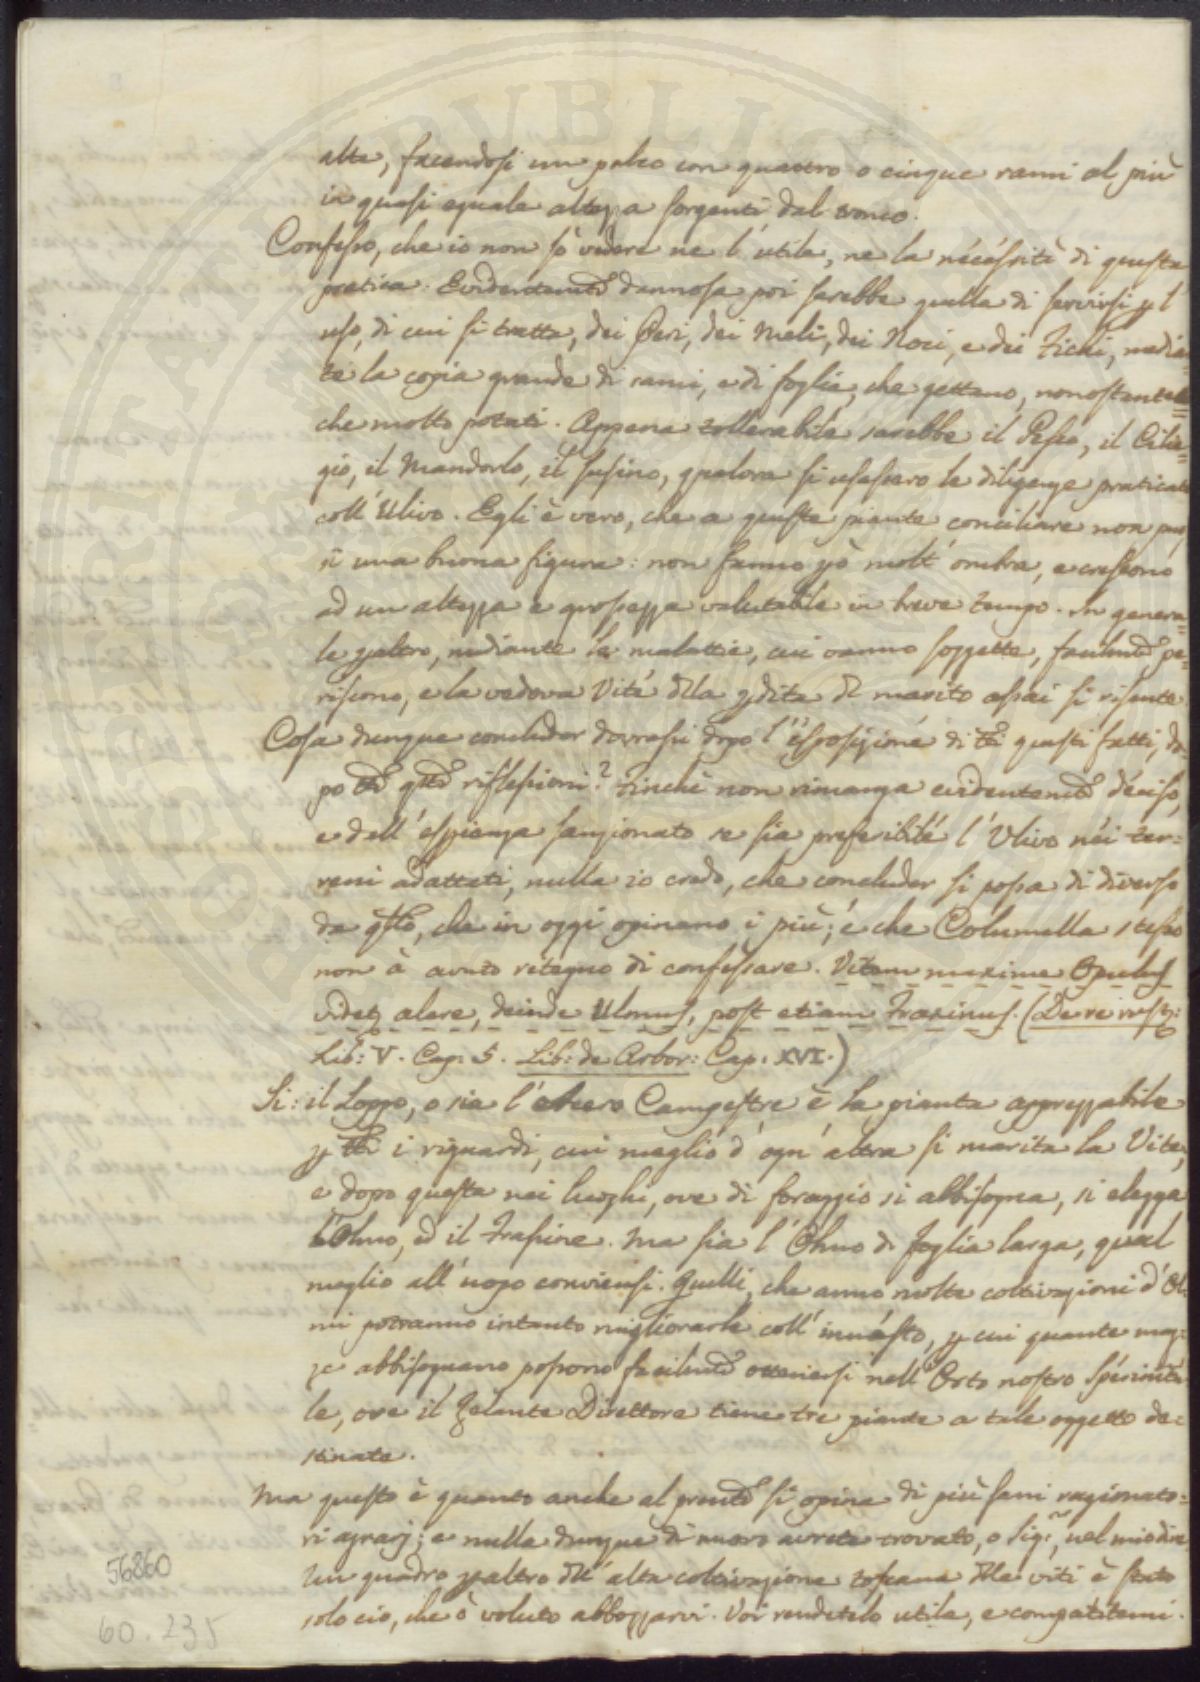 alta, facendosi un palco con quattro o cinque rami al più
in quasi eguale altezza sorgenti dal tronco.
Confesso, che io non sò vedere ne l'utile, ne la necéssità di questa
pratica. Evidentem.te dannosa poi sarebbe quella di servirsi p l'
uso, di cui si tratta, dei Peri, dei Meli, dei Noci, e dei Fichi, media=
te la copia grande di rami, e di foglie, che gettano, nonostante
che molto potati. Appena tollerabile sarebbe il Pesco, il Cilie=
gio, il Mandorlo, il Susino, qualora si usassero le diligenze praticate
coll'Ulivo. Egli è vero, che a queste piante conciliare non può
si una buona figura: non fanno pò molt'ombra, e crescono
ad un altezza e grossezza valutabile in breve tempo. In genera=
le paltro, mediante le malattie, cui vanno soggette, facilm.te pe=
riscono, e la vedova Vite dlla pdita dl marito assai si risente
Cosa dunque concluder dovrassi dopo l'esposizione di tti questi fatti, do=
po tte qste riflessioni? Finchè non rimanga evidentem.te deciso,
e dall'espienza sanzionato se sia preferibile l'Ulivo néi ter=
reni adattati, nulla io credo, che concluder si possa di diverso
da qllo, che in oggi opinano i più; e che Columella stesso
non à avuto ritegno di confessare. Vitem maxime Opulus
videtz alere, deinde Ulmus, post etiam Fraxinus. (De re rustz:
Lib: V. Cap: 5. Lib: de Arbor: Cap: XVI.)
Si: il Loppo, o sia l'Acero Campestre è la pianta apprezzabile
p tti i riguardi, cui meglio d'ogn'altra si marita la Vite;
e dopo questa nei luoghi, ove di foraggio si abbisogna, si elegga
l'Olmo, ed il Frassine. Ma sia l'Olmo di foglia larga, qual
meglio all'uopo conviensi. Quelli, che anno molte coltivazioni d'Ol
mi potranno intanto migliorarle coll'innésto, p cui quante maz=
ze abbisognano possono facilm.te ottenersi nell'Orto nostro Sperimta
le, ove il Zelante Direttore tiene tre piante a tale oggetto de=
stinate.
Ma questo è quanto anche al prente si opina di più sani ragionato=
ri agrarj; e nulla dunque di nuovo avrete trovato, o Sig.ri, nel mio dire
Un quadro paltro dll'alta coltivazione toscana dlle viti è stato
solo ciò, che ò voluto abbozzarvi. Voi rendetelo utile, e compatitemi.
56860
60.235